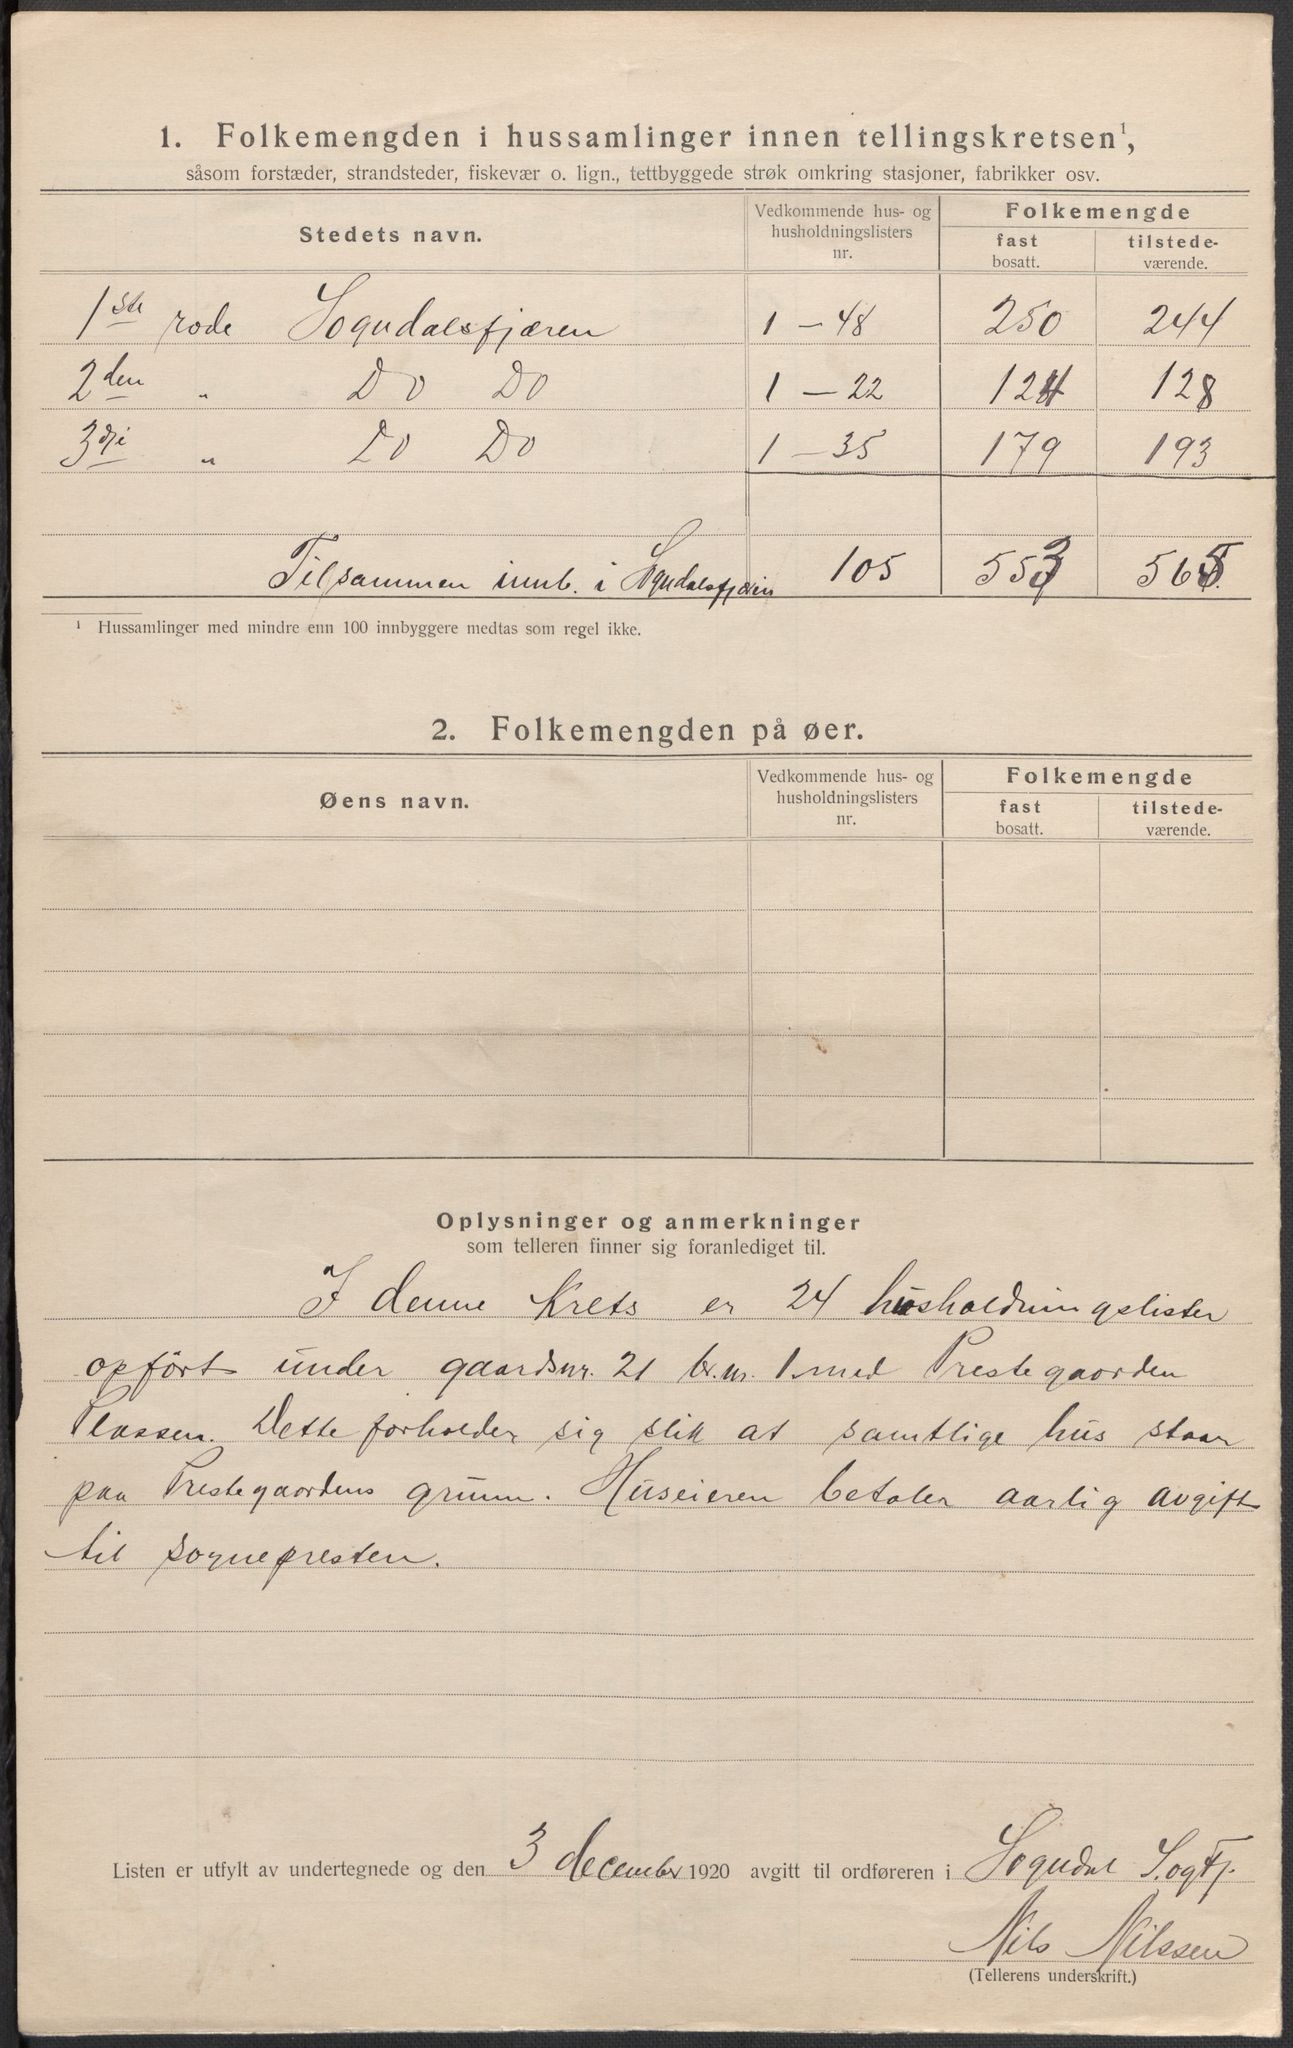 1. Folkemengden i hussamlinger innen tellingskretsen¹,
såsom forstæder, strandsteder, fiskevær o. lign., tettbyggede strøk omkring stasjoner, fabrikker osv.
Stedets navn. Vedkommende hus- og husholdningslisters nr. Folkemengde
fast bosatt. tilstedeværende.
1ste rode Sogndalsfjæren 1 - 48 250 244
2den " Do Do 1 - 22 124 128
3dje " Do Do 1 - 35 179 193
Tilsammen innb. i Sogndalsfjæren 105 553 565
¹ Hussamlinger med mindre enn 100 innbyggere medtas som regel ikke.
2. Folkemengden på øer.
Øens navn. Vedkommende hus- og husholdningslisters nr. Folkemengde
fast bosatt. tilstedeværende.
Oplysninger og anmerkninger
som telleren finner sig foranlediget til.
I denne Krets er 24 husholdningslister
opført under gaardsnr. 21 br.nr. 1 med Prestegaarden
Plassen. Dette forholder sig slik at samtlige hus staar
paa Prestegaardens grunn. Huseieren betaler aarlig avgift
til sognepresten.
Listen er utfylt av undertegnede og den 3 december 1920 avgitt til ordføreren i Sogndal S.ogFj.
Nils Nilssen
(Tellerens underskrift.)